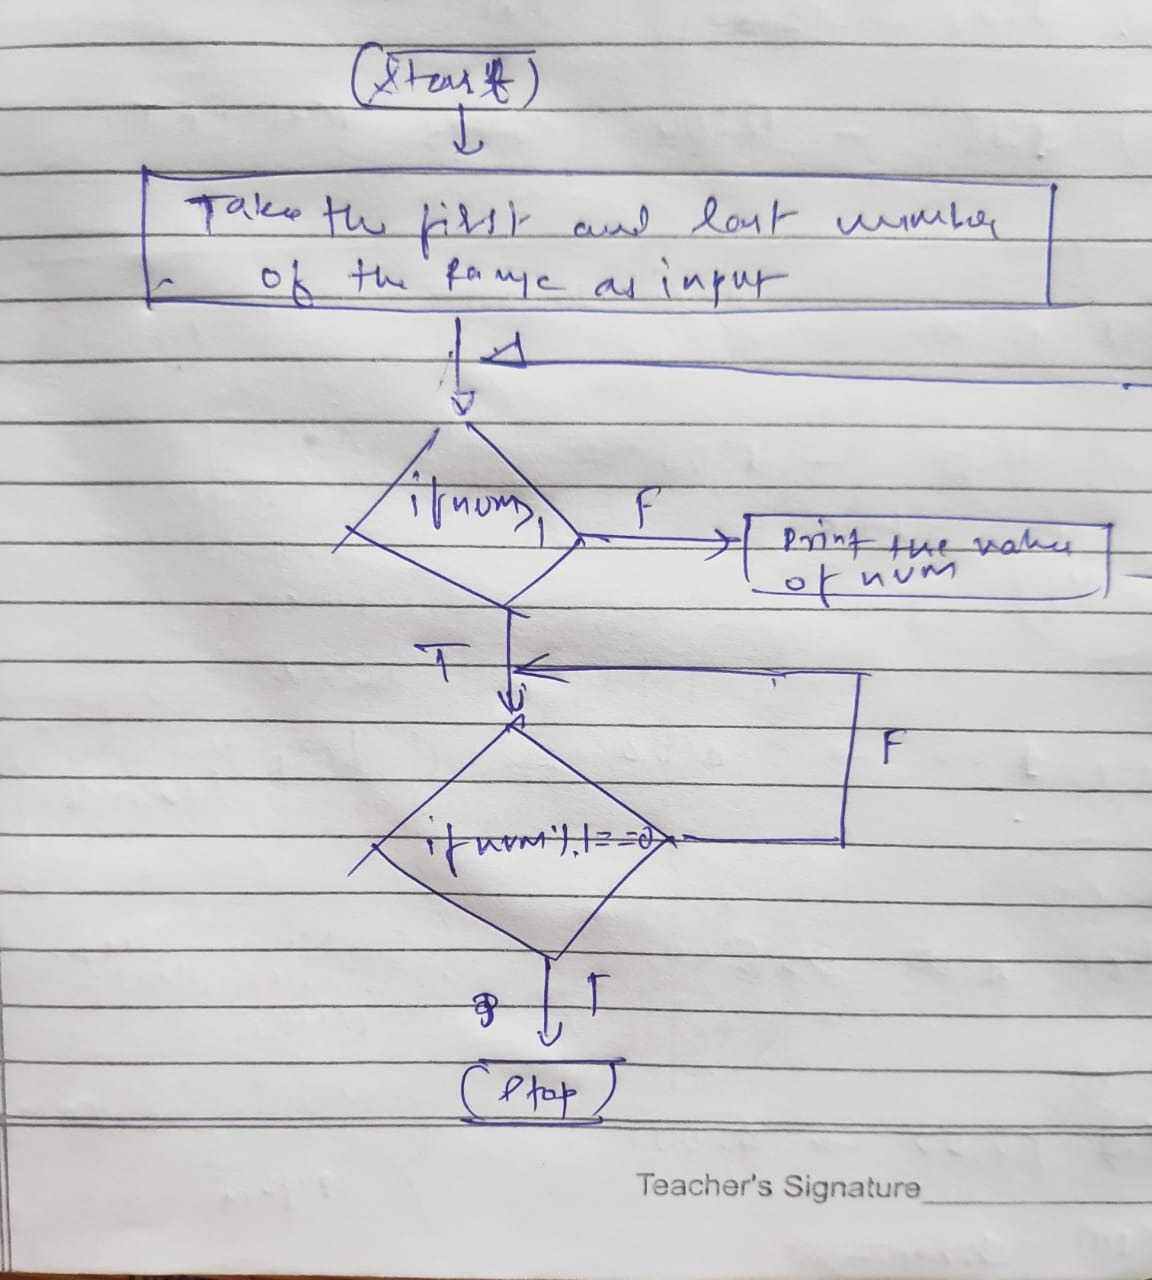 Start
Take the first and last number
of the Range as input
if num>1
F
Print the value
of num
T
F
if num%1==0
T
Stop
Teacher's Signature